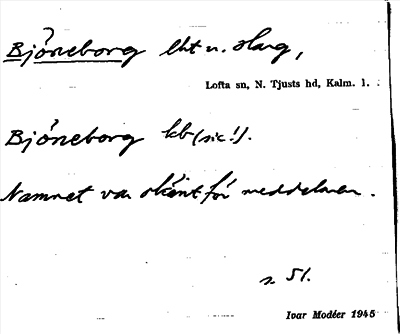 Bjōneborg lht u. Harg,
Lofta sn, N. Tjusts hd, Kalm. l.
Bjōneborg kb (sic!).
Namnet var okänt för meddelaren.
s. 51.
Ivar Modéer 1945